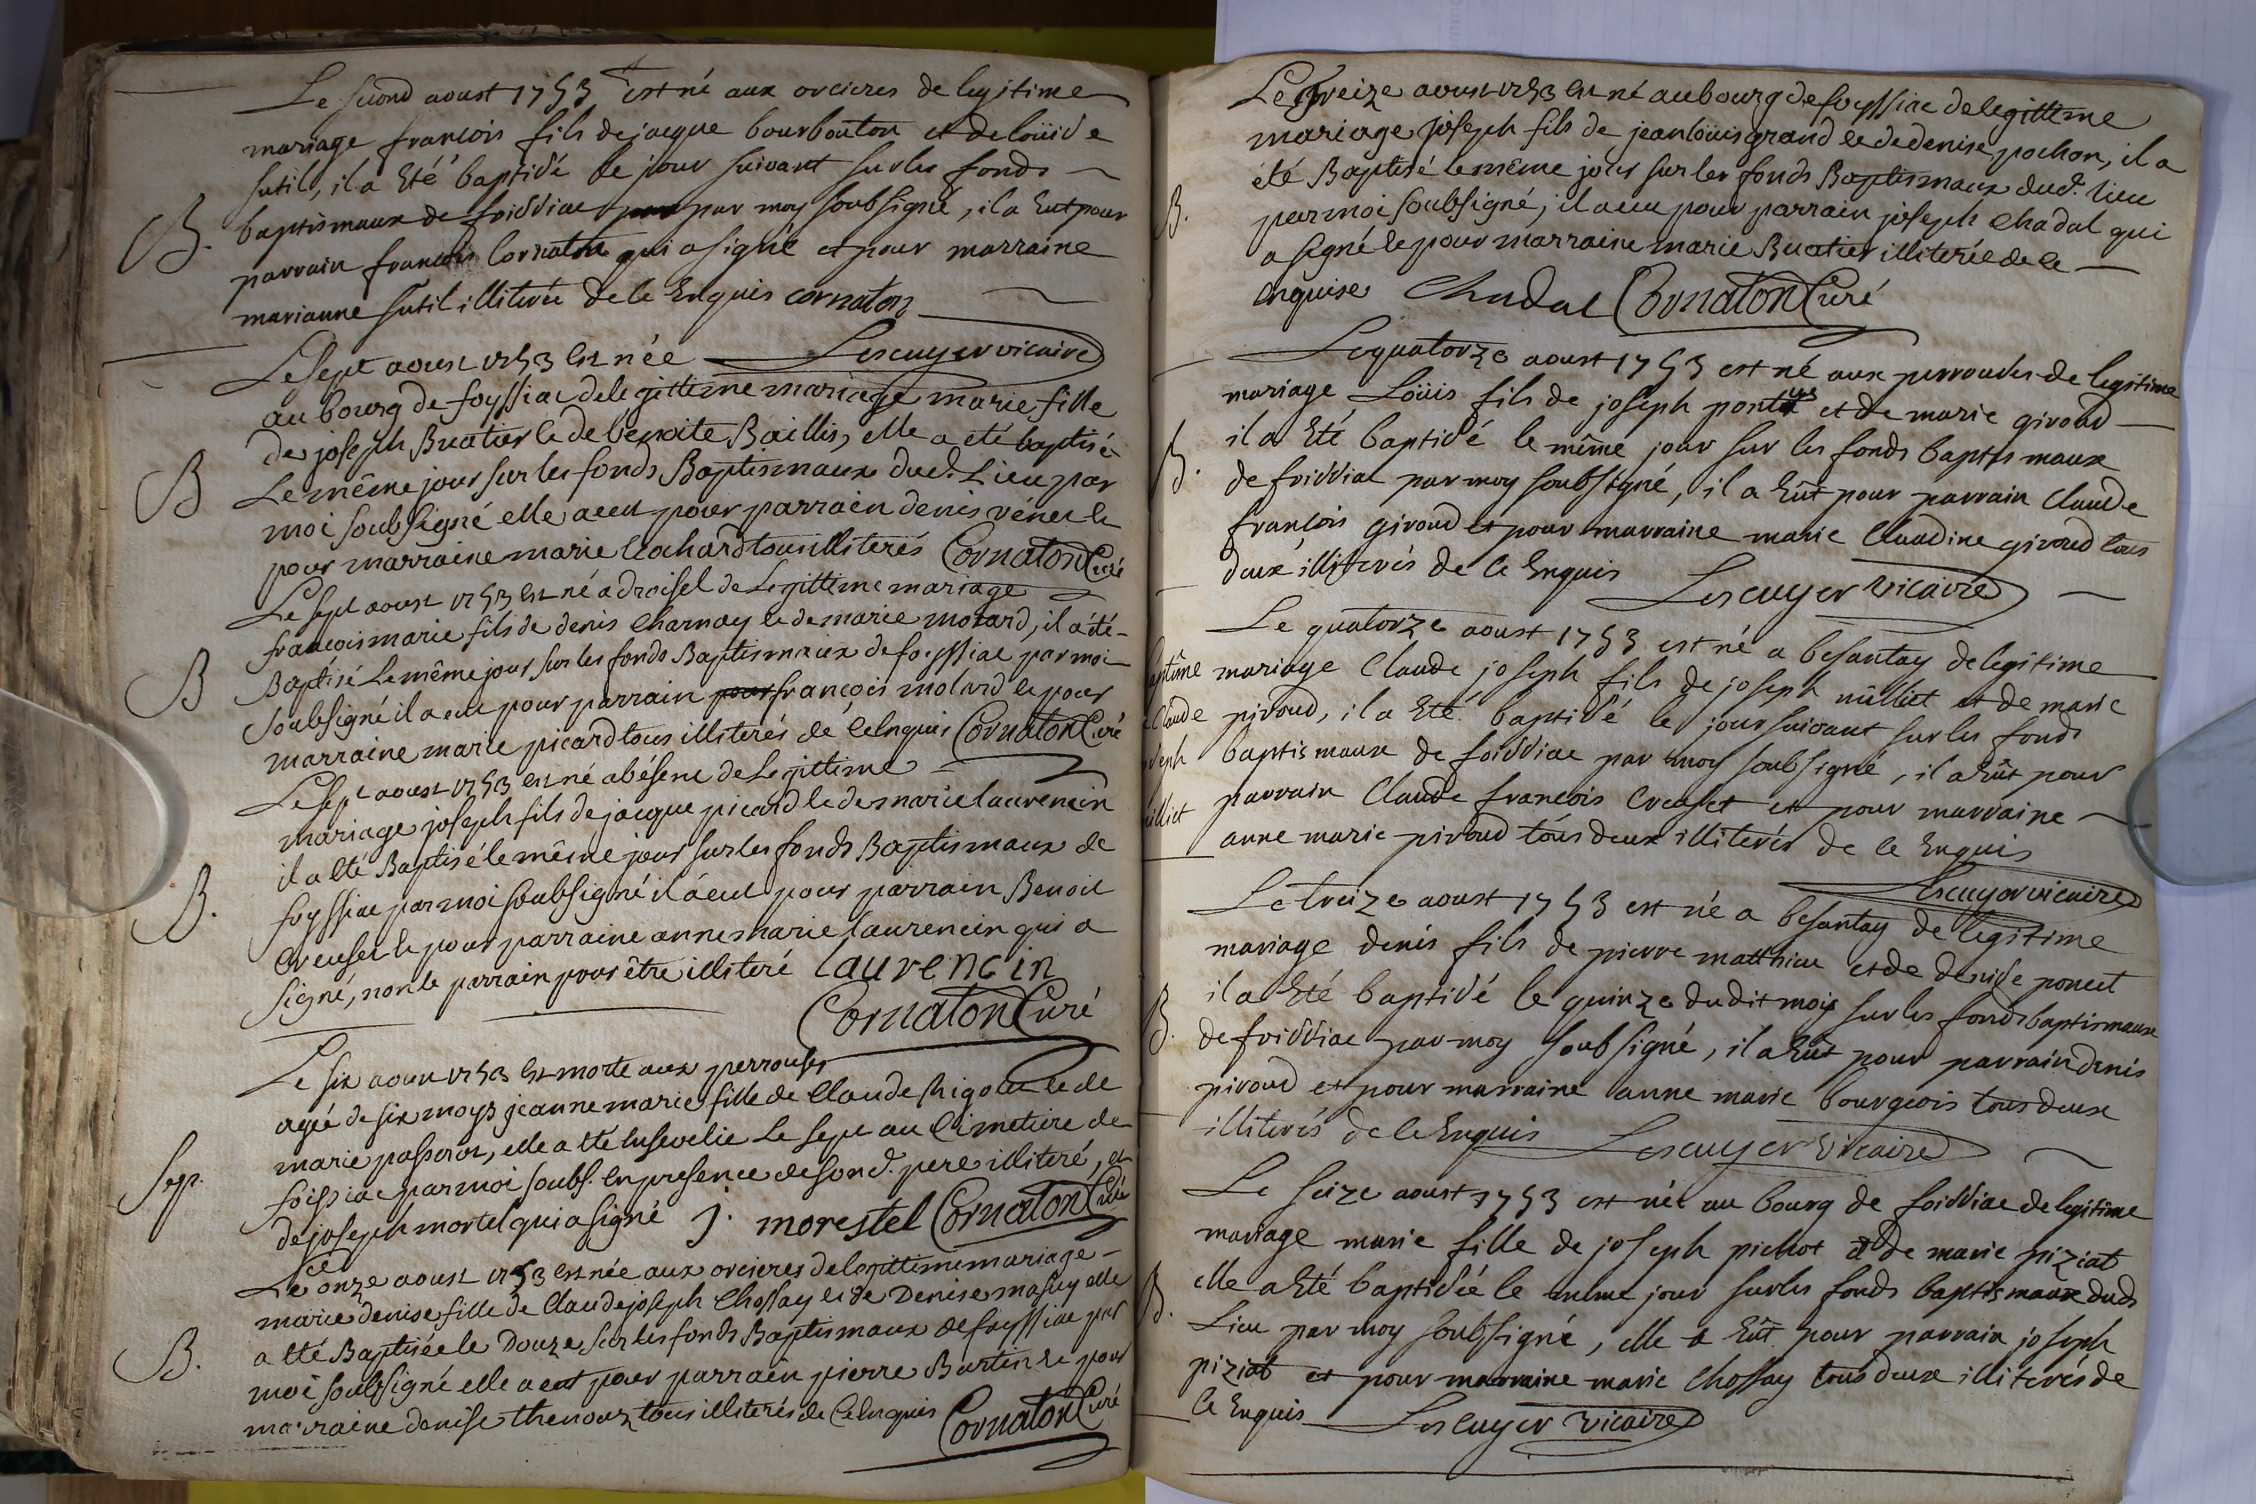 Le second aoust 1753 est né aux orcieres de legitime
mariage francois fils de jacque bourbouton et de loüise
sutil, il a été baptisé le jour suivant sur les fonds
B. baptismaux de foissiac par moy soubsigné, il a eut pour
parrain francois Cornaton qui a signé et pour marraine
marianne sutil illiterée de ce Enquis cornaton
Lescuyer vicaire
Le sept aoust 1753 est née
au bourg de foyssiac de legittime mariage marie fille
de joseph Buatier et de benoite Baillis, elle a été baptisé
B Le même jour sur les fonds Baptismaux dud. Lieu par
moi soubsigné elle a eut pour parrain denis vénet et
pour marraine marie Cochard tous illiterés Cornaton Curé
Le sept aoust 1753 est né a droisel de Legittime mariage
francois marie fils de denis Charnay et de marie motard, il a été
B Baptisé Le même jour sur les fonds Baptismaux de foyssiac par moi
soubsigné il a eu pour parrain francois molard et pour
marraine marie picard tous illiterés de ce Enquis Cornaton Curé
Le sept aoust 1753 est né a bésene de Legittime
mariage joseph fils de jacque picard et de marie laurencin
il a été Baptisé le même jour sur les fonds Baptismaux de
B. foyssiac par moi soubsigné il a eut pour parrain Benoit
Creuset et pour marraine anne marie laurencin qui a
signé, non le parrain pour être illiteré laurencin
Cornaton Curé
Le six aoust 1753 est morte aux perrouses
agée de six moys jeanne marie fille de Claude Rigollet et de
marie passerat, elle a été Ensevelie Le sept au Cimetiere de
Sep. foissiac par moi soubs. En presence de son d. pere illiteré, et
de joseph mortel qui a signé j. morestel Cornaton Curé
Le onze aoust 1753 est née aux orcieres de Legittime mariage
marie denise fille de Claude joseph Chossay et de Denise masuy elle
a été Baptisée le Douze sur les fonds Baptismaux de foyssiac par
B. moi soubsigné elle a eut pour parrain pierre Burtin et pour
marraine denise thenoux tous illiterés de Ce Enquis Cornaton Curé
Le treize aoust 1753 est né au bourg de foyssiac de legittime
mariage joseph fils de jean loüis grand et de denise pochon, il a
été Baptisé le même jour sur les fonds Baptismaux dud. lieu
B. par moi soubsigné, il a eu pour parrain joseph Chadal qui
a signé et pour marraine marie Buatier illiterée de ce
enquise Chadal Cornaton Curé
Le quatorze aoust 1753 est né aux perrouses de legitime
mariage Loüis fils de joseph pontus et de marie giroud
il a été baptisé le même jour sur les fonds baptismaux
B. de foissiac par moy soubsigné, il a Eût pour parrain Claude
francois giroud et pour marraine marie Claudine giroud tous
deux illiterés de ce Enquis Lescuyer vicaire
Le quatorze aoust 1753 est né a besantay de legitime
mariage Claude joseph fils de joseph nilliet et de marie
Claude piroud, il a été baptisé le jour suivant sur les fonds
baptismaux de foissiac par moy soubsigné, il a Eût pour
parrain Claude francois Creuset et pour marraine
anne marie piroud tous deux illiterés de ce Enquis
Lescuyer vicaire
Le treize aoust 1753 est né a besantay de legitime
mariage denis fils de pierre matthieu et de denise poncet
il a Eté baptisé le quinze dudit mois sur les fonds baptismaux
B. de foissiac par moy soubsigné, il a Eût pour parrain denis
piroud et pour marraine anne marie bourgeois tous deux
illiterés de ce Enquis Lescuyer vicaire
Le seize aoust 1753 est née au bourg de foissiac de legitime
mariage marie fille de joseph pichot et de marie piziat
elle a Eté baptisée le même jour sur les fonds baptismaux dud.
B. Lieu par moy soubsigné, elle a Eût pour parrain joseph
piziat et pour marraine marie Chossay tous deux illiterés de
ce Enquis Lescuyer vicaire